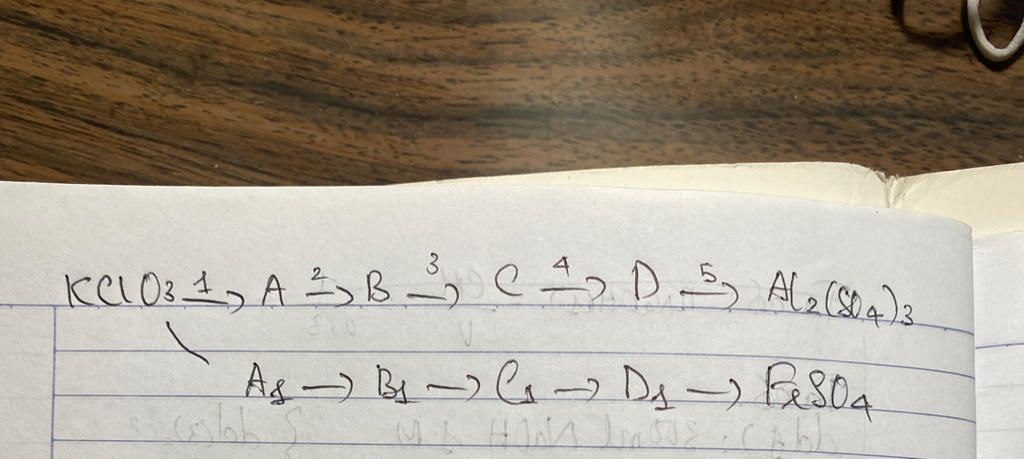 KClO3 1→ A 2→ B 3→ C 4→ D 5→ Al2(SO4)3
A1 → B1 → C1 → D1 → FeSO4